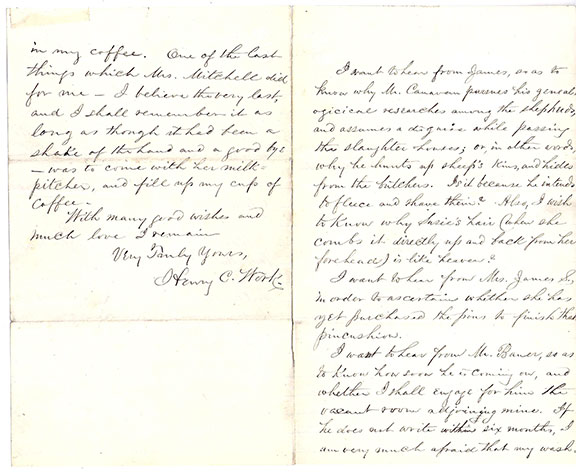 in my coffee. One of the last
things which Mrs. Mitchell did
for me – I believe the very last,
and I shall remember it as
long as though it had been a
shake of the hand and a good bye
– was to come with her milk
pitcher, and fill up my cup of
coffee.
With many good wishes and
much love I remain
Very Truly Yours,
Henry C. Work.
I want to hear from James, so as to
know why Mr. Canavan pursues his geneal-
ogical researches among the shepherds,
and assumes a disguise while passing
the slaughter houses; or, in other words,
why he hunts up sheep's kins, and hides
from the butchers. Is it because he intends
to fleece and shave them? Also, I wish
to know why Susie's hair (when she
combs it directly up and back from her
forehead) is like heaven?
I want to hear from Mrs. James S,
in order to ascertain whether she has
yet purchased the pins to finish that
pincushion.
I want to hear from Mr. Bauer, so as
to know how soon he is coming on, and
whether I shall engage for him the
vacant room adjoining mine. If
he does not write within six months, I
am very much afraid that my wash